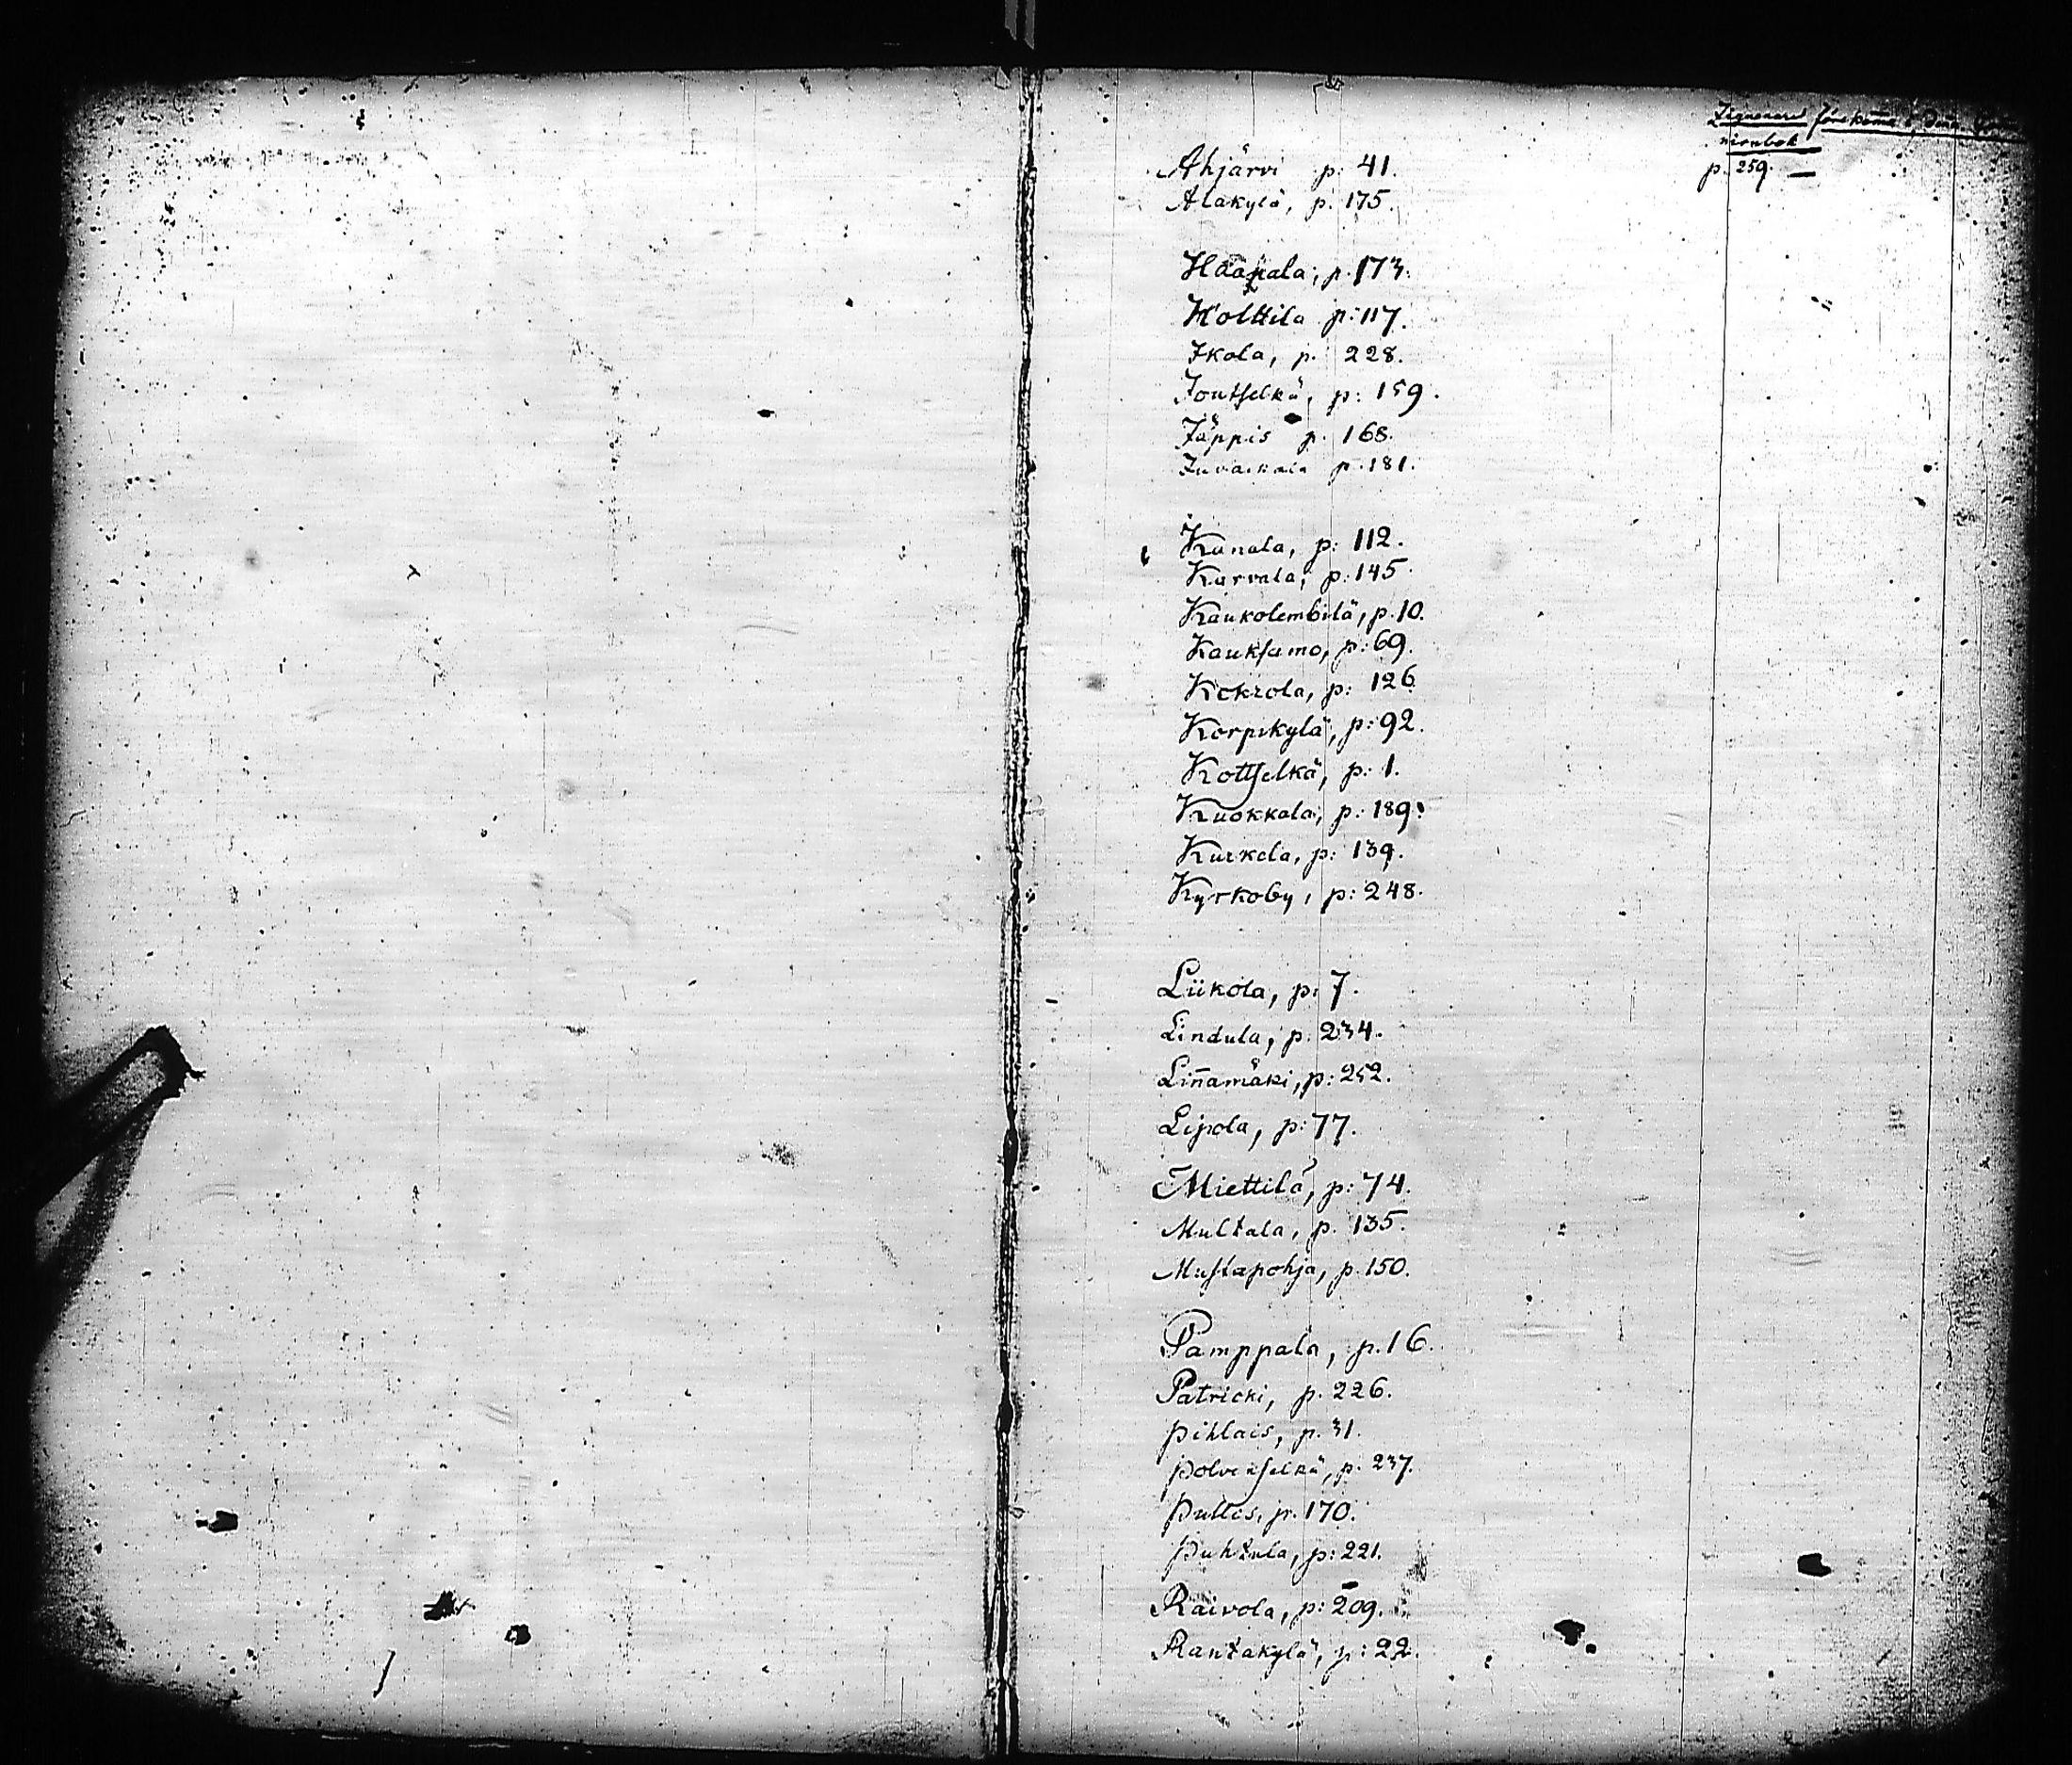 Zigenarel förekomma i
p. 259. —
Ahjärvi p: 41.
Alakylä, p. 175.
Haapala, p. 173.
Holttila p: 117.
Ikola, p. 228.
Joutselkä, p: 159.
Jäppis p. 168.
p. 181.
Kanala, p: 112.
Karvala, p: 145.
Kaukolembilä, p. 10.
Kauksamo, p: 69.
Kokrola, p: 126
Korpikylä, p: 92.
Kottselkä, p: 1.
Kuokkala, p: 189.
Kurkela, p: 139.
Kyrkoby, p: 248.
Liikola, p: 7.
Lindula, p: 234.
Lin̄amäki, p: 252.
Lipola, p: 77.
Miettilä, p: 74.
Multala, p. 135.
Mustapohja, p. 150.
Pamppala, p. 16.
Patricki, p. 226.
Pihlais, p. 31.
Polvenselkä, p. 237.
Pullis, p. 170.
Puhtula, p: 221.
Raivola, p: 209.
Rantakylä, p: 22.